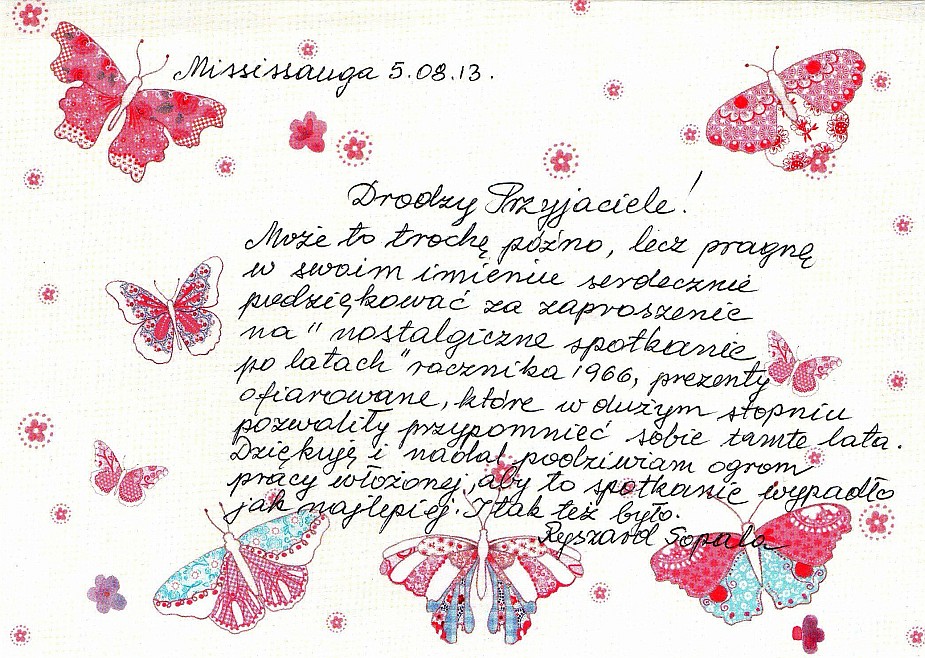 Mississauga 5.08.13.
Drodzy Przyjaciele!
Może to trochę późno, lecz pragnę
w swoim imieniu serdecznie
podziękować za zaproszenie
na "nostalgiczne spotkanie
po latach" rocznika 1966, prezenty
ofiarowane, które w dużym stopniu
pozwoliły przypomnieć sobie tamte lata.
Dziękuję i nadal podziwiam ogrom
pracy włożonej, aby to spotkanie wypadło
jak najlepiej. I tak też było.
Ryszard Sopala